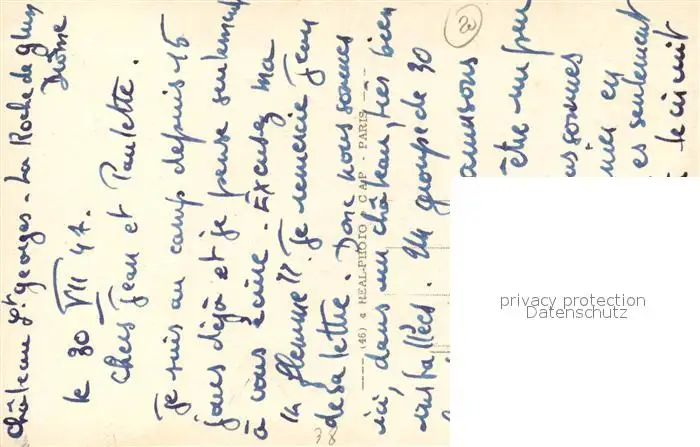 château St georges - La Roche de glun
Drôme
le 30 VII 47.
Chers Jean et Paulette.
Je suis au camp depuis 15
jours déjà et je pense seulement
à vous écrire. Excusez ma
"flemme". Je remercie Jean
de sa lettre. Donc nous sommes
ici, dans un château, très bien
installées. Un groupe de 30
amusons
être un peu
sommes
en
es seulement
le circuit
20
38
(46) a REAL-PHOTO CAP - PARIS
privacy protection
Datenschutz